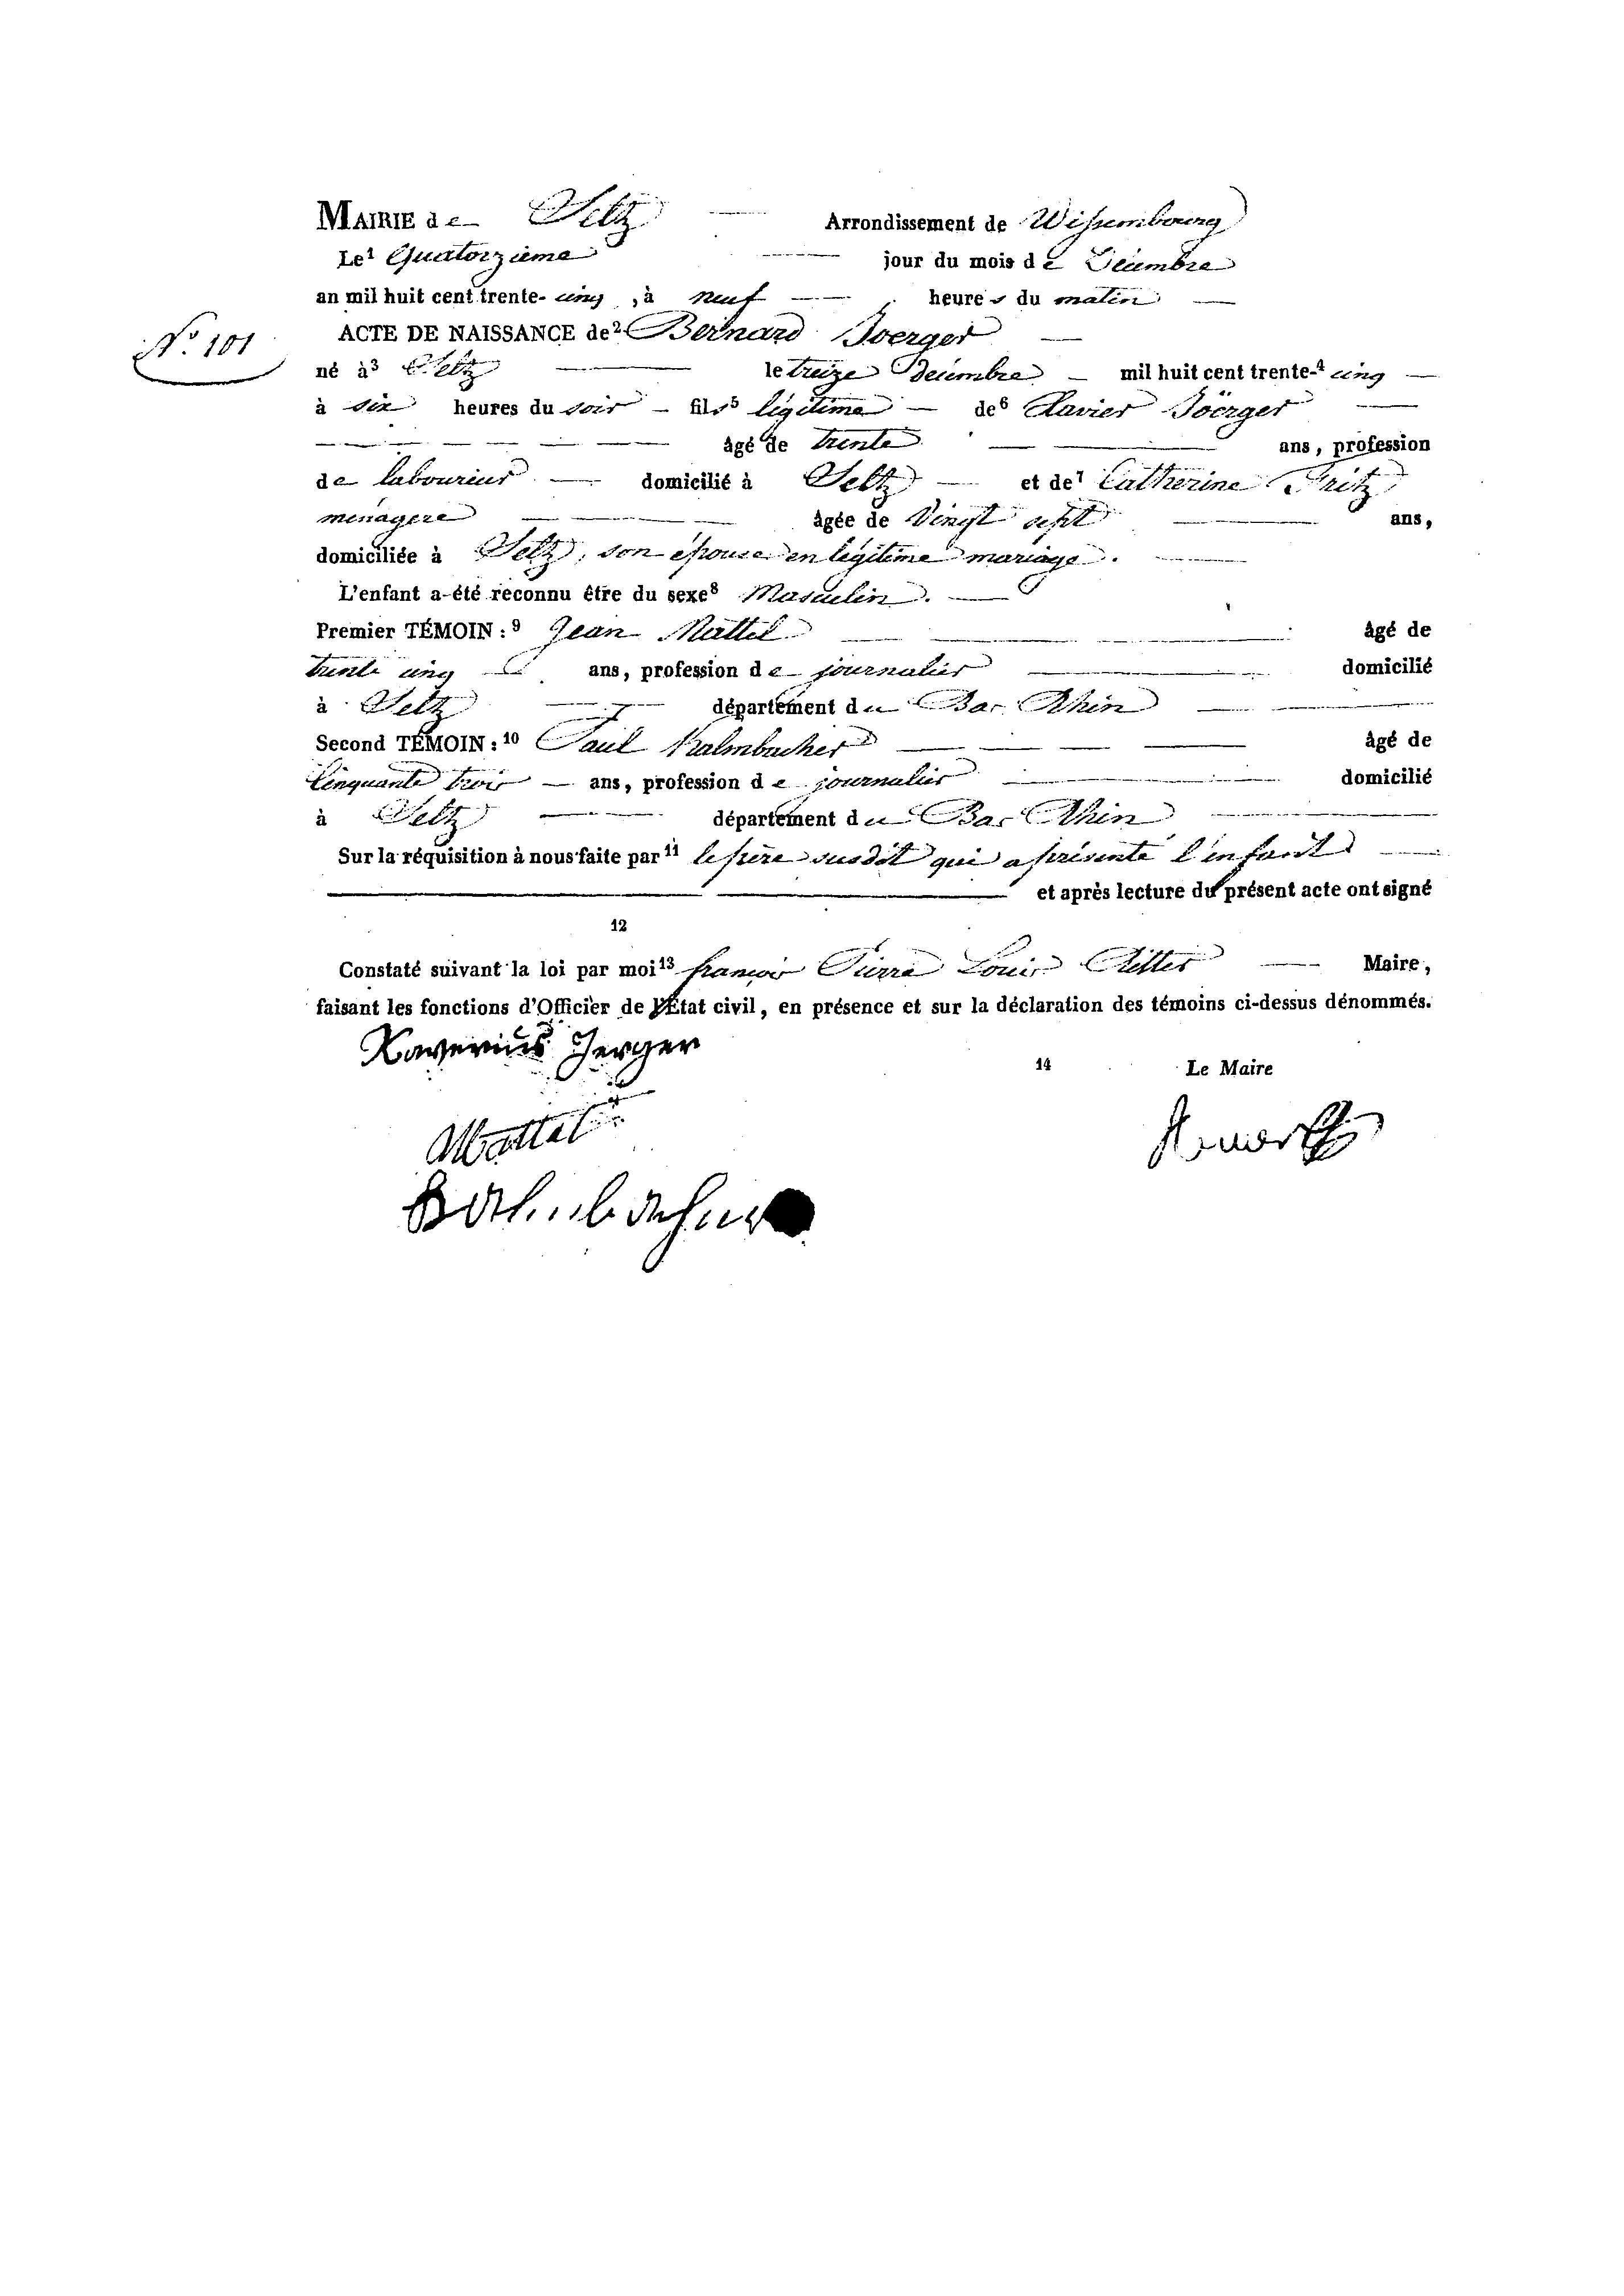 MAIRIE de Seltz Arrondissement de Wissembourg
Le¹ Quatorzieme jour du mois de Décembre
an mil huit cent trente-cinq, à neuf heures du matin
N.° 101
ACTE DE NAISSANCE de² Bernard Joerger
né à³ Seltz le treize Décembre mil huit cent trente-⁴ cinq
à six heures du soir fils⁵ légitime de⁶ Xavier Jöerger
âgé de trente ans, profession
de laboureur domicilié à Seltz et de⁷ Catherine Fritz
menagere âgée de Vingt sept ans,
domiciliée à Seltz, son épouse en légitime mariage.
L'enfant a été reconnu être du sexe⁸ Masculin.
Premier TÉMOIN:⁹ Jean Mattel âgé de
trente cinq ans, profession de journalier domicilié
à Seltz département du Bas Rhin
Second TÉMOIN:¹⁰ Paul Kalmbacher âgé de
Cinquante trois ans, profession de journalier domicilié
à Seltz département du Bas Rhin
Sur la réquisition à nous faite par¹¹ le père susdit qui a présenté l'enfant
et après lecture du présent acte ont signé
12
Constaté suivant la loi par moi¹³ françois Pierre Louis Maire,
faisant les fonctions d'Officier de l'État civil, en présence et sur la déclaration des témoins ci-dessus dénommés.
Xaverius Jerger
14 Le Maire
Mattel